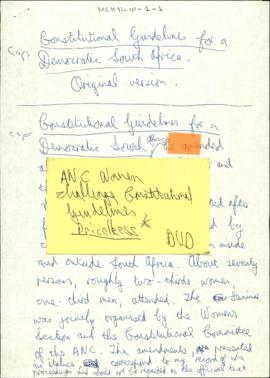 MCH91-10-1-1
Constitutional Guidelines for a
Caps
Democratic South Africa.
Original version.
Constitutional Guidelines for a
caps
Democratic South
as amended
ANC Women
challenge Constitutional
Guidelines
Priceless
DVD
and
after
by
inside
and outside South Africa. About seventy
persons, roughly two-thirds women,
one-third men, attended. The Seminar
was jointly organised by the Women's
Section and the Constitutional Committee
of the ANC. The amendments, presented
in italics, correspond to my record of the
proceedings and should not be regarded as the official text